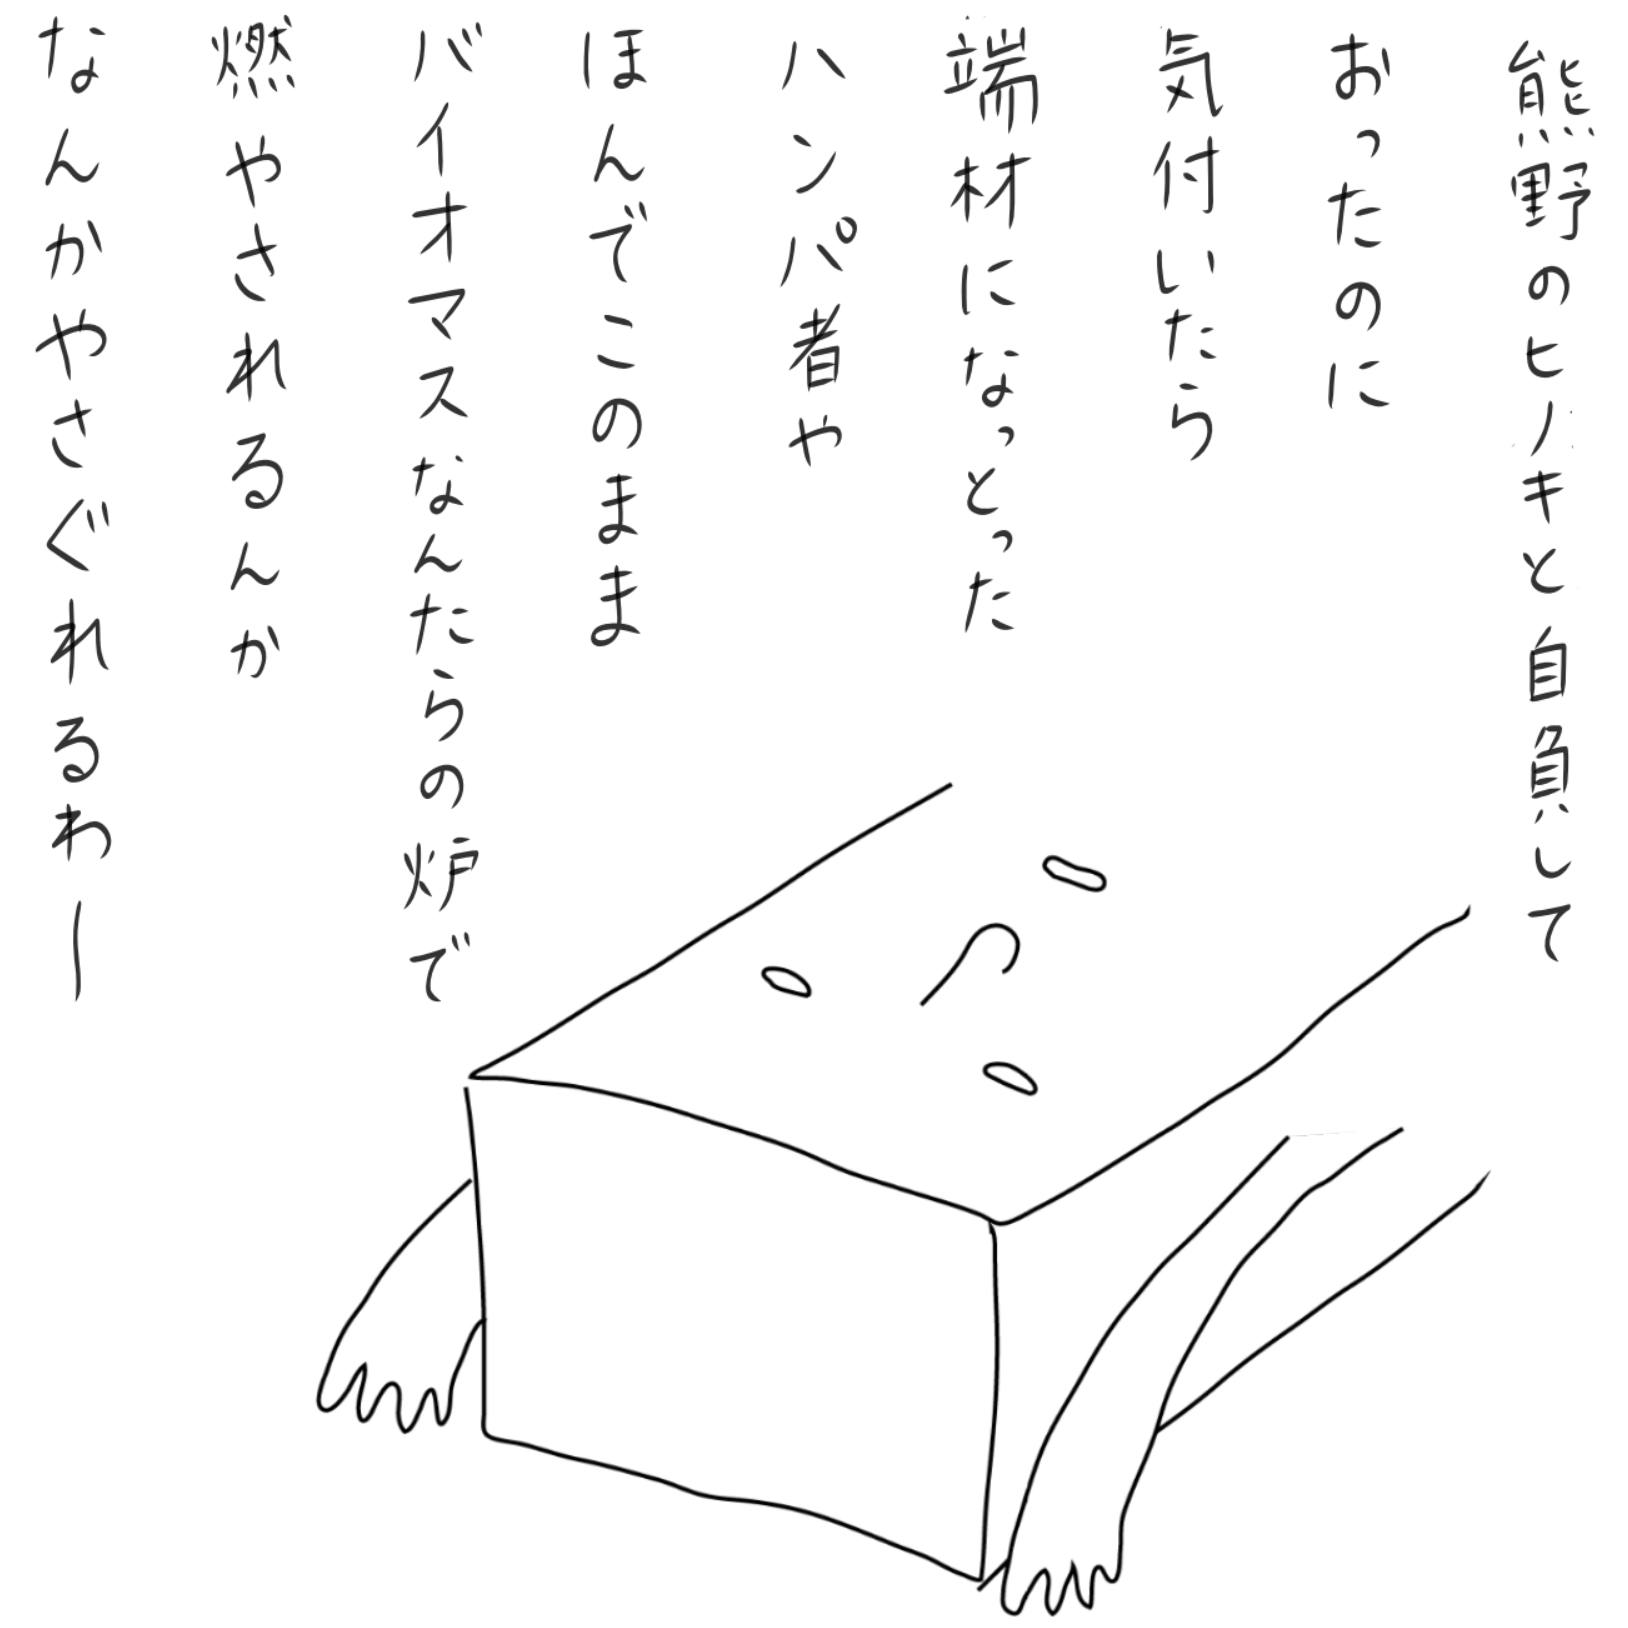 熊野のヒノキと自負して
おったのに
気付いたら
端材になっとった
ハンパ者や
ほんでこのまま
バイオマスなんたらの炉で
燃やされるんか
なんかやさぐれるわー